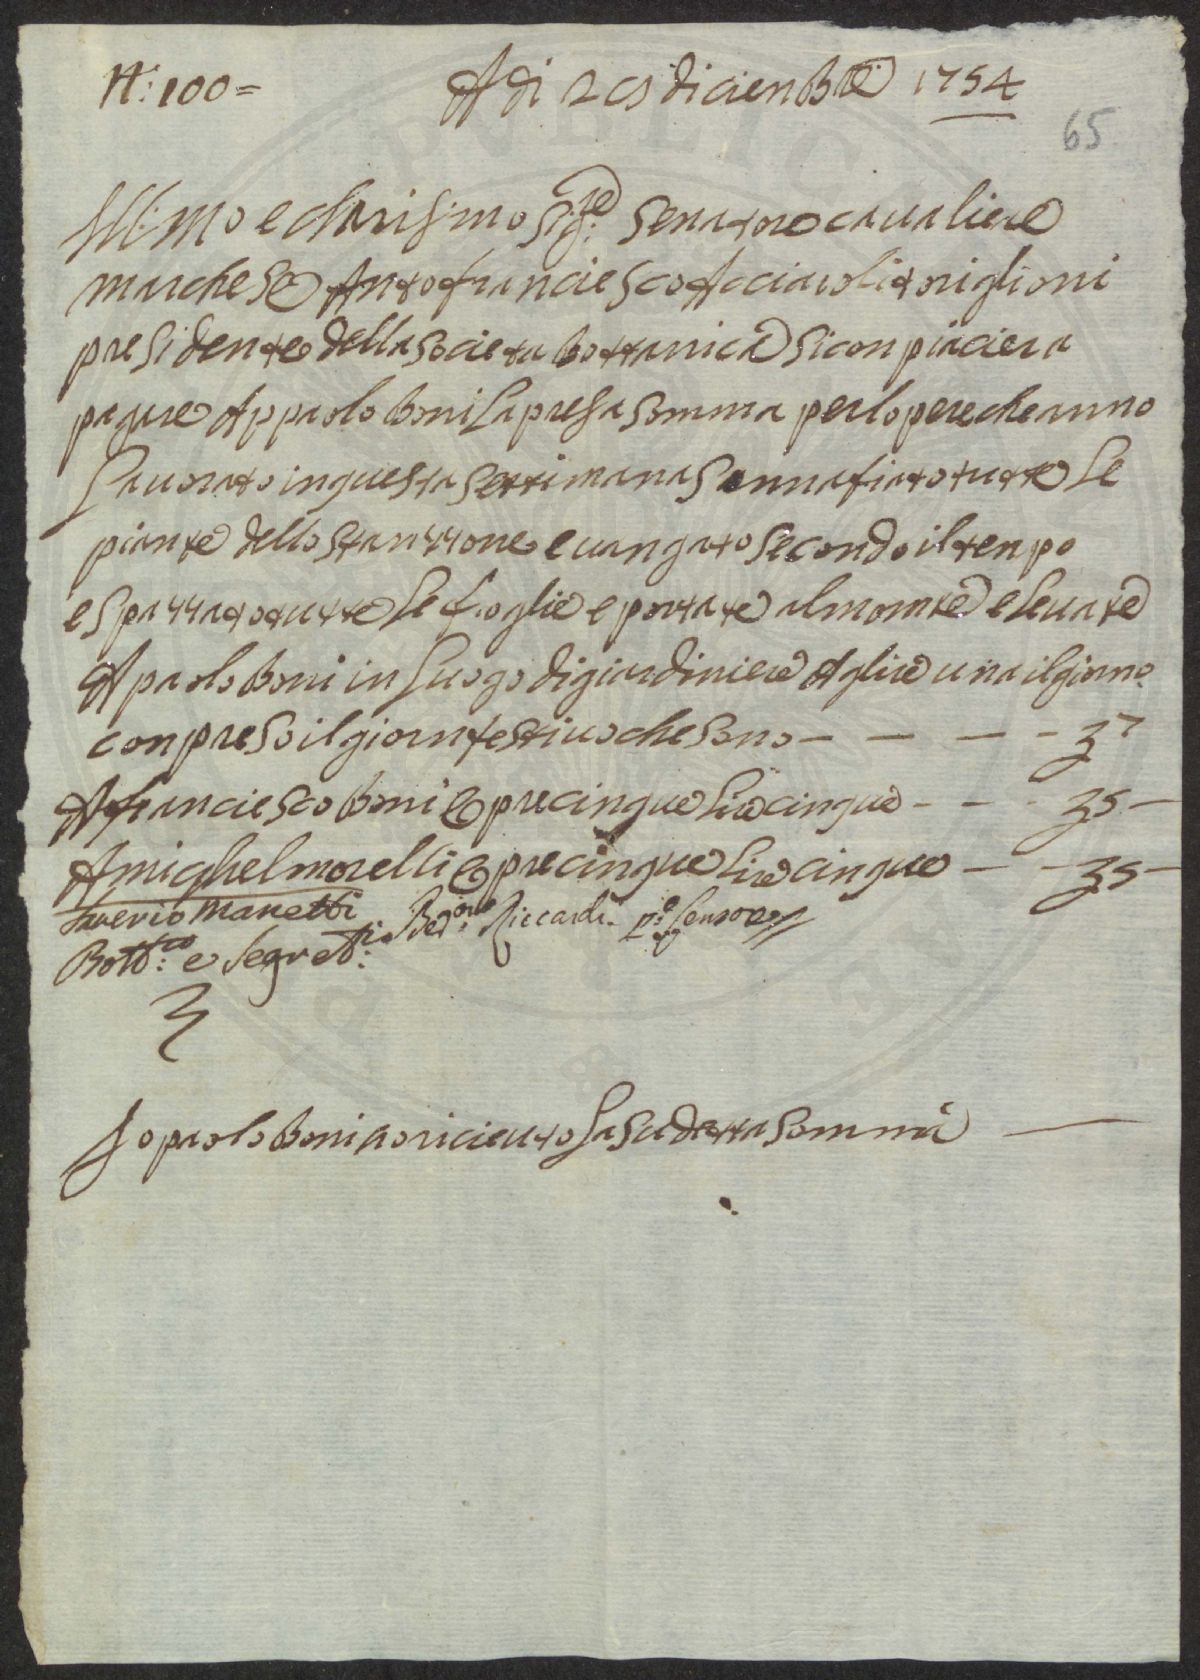 N: 100=
A di 2 Dicienbre 1754
65
Ill:mo e charisi:mo Sig:re Senatore cavaliere
marchese Antofranciesco Acciaioli toriglioni
presidente della Societa bottanica si conpiaciera
pagare Appaolo boni la presa somma per lopere che anno
lavorato in questa settimana S annafiato tutte le
piante dello stanzzone e vangato secondo il tenpo
e spazzato tutte le foglie e portate al monte e levate
A paolo boni in luogo di giardiniere A lire una il giorno
conpreso il giorn festivo che sono — — — - 7
A franciesco boni opre cinque lire cinque - - - 5 —
A mighel morelli opre cinque lire cinque — - 5 —
Saverio Manetti
Bott:co e Segret:io Bed: Riccardi p:o Censore
Jo paolo boni o riceuto la sudetta somma —